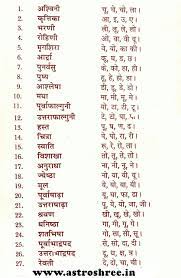 1. अश्विनी चू, चे, चो, ला।
2. कृत्तिका आ, इ, उ, ए।
3. भरणी ली, लू, ले, लो।
4. रोहिणी ओ, वा, वी, वू।
5. मृगशिरा वे, वो, का, की।
6. आर्द्रा कू, घ, ड, छ।
7. पुनर्वसु के, को, हा, ही।
8. पुष्य हू, हे, हो, डा।
9. आश्लेषा डी, डू, डे, डो।
10. मघा मा, मी, मू, मे।
11. पूर्वाफाल्गुनी मो, टा, टी, टू।
12. उत्तराफाल्गुनी टे, टो, पा, पी।
13. हस्त पू, ष, ण, ठ।
14. चित्रा पे, पो, रा, री।
15. स्वाति रू, रे, रो, ता।
16. विशाखा ती, तू, ते, तो।
17. अनुराधा ना, नी, नू, ने।
18. ज्येष्ठा नो, या, यी, यू।
19. मूल ये, यो, भा, भी।
20. पूर्वाषाढ़ा
21. उत्तराषाढ़ा
22. श्रवण खी, खू, खे, खो।
23. धनिष्ठा गा, गी, गू, गे।
24. शतभिषा गो, सा, सी, सू।
25. पूर्वाभाद्रपद से, सो, दा, दी।
26. उत्तराभाद्रपद
27. रेवती दे, दो, चा, ची।
www.astroshree.in